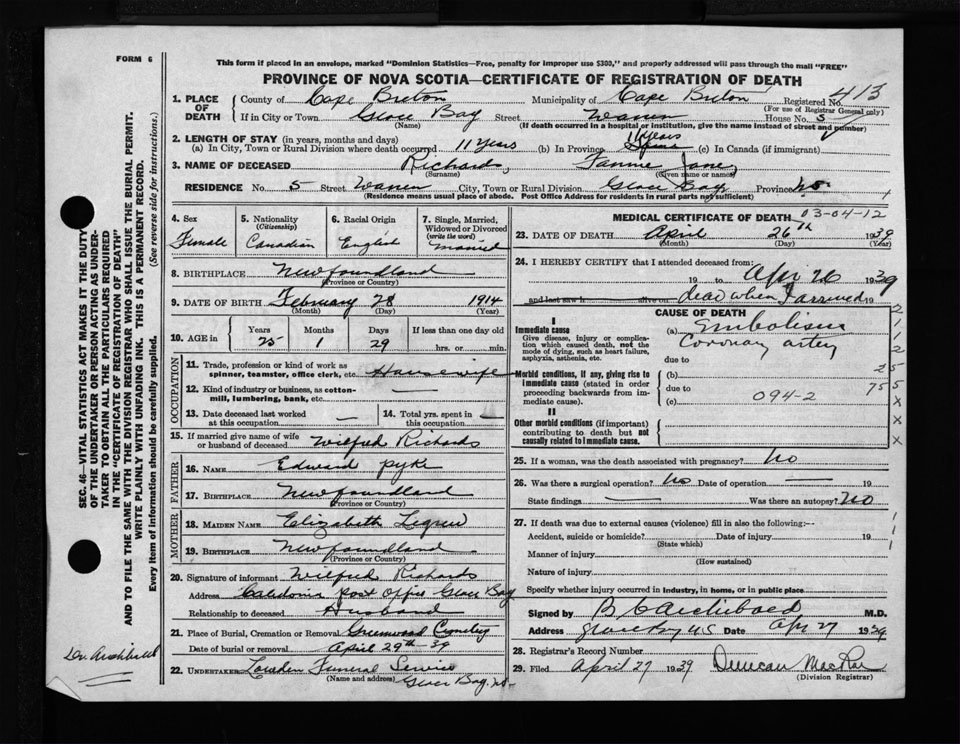 FORM 6
This form if placed in an envelope, marked "Dominion Statistics—Free, penalty for improper use $300," and properly addressed will pass through the mail "FREE"
PROVINCE OF NOVA SCOTIA—CERTIFICATE OF REGISTRATION OF DEATH
413
1. PLACE OF DEATH County of Cape Breton Municipality of Cape Breton Registered No.
(For use of Registrar General only)
If in City or Town Glace Bay Street Warren House No. 5
(Name) (If death occurred in a hospital or institution, give the name instead of street and number)
2. LENGTH OF STAY (in years, months and days)
(a) In City, Town or Rural Division where death occurred 11 years (b) In Province 11 years (c) In Canada (if immigrant)
3. NAME OF DECEASED Richards, Fannie Jane
(Surname) (Given name or names)
RESIDENCE No. 5 Street Warren City, Town or Rural Division Glace Bay Province N.S.
(Residence means usual place of abode. Post Office Address for residents in rural parts not sufficient)
4. Sex Female
5. Nationality (Citizenship) Canadian
6. Racial Origin English
7. Single, Married, Widowed or Divorced (write the word) Married
8. BIRTHPLACE Newfoundland
(Province or Country)
9. DATE OF BIRTH February 28 1914
(Month) (Day) (Year)
10. AGE in Years Months Days If less than one day old
25 1 29 hrs. or min.
OCCUPATION
11. Trade, profession or kind of work as spinner, teamster, office clerk, etc. Housewife
12. Kind of industry or business, as cotton-mill, lumbering, bank, etc.
13. Date deceased last worked at this occupation —
14. Total yrs. spent in this occupation —
15. If married give name of wife or husband of deceased Wilfred Richards
FATHER
16. NAME Edward Pyke
17. BIRTHPLACE Newfoundland
(Province or Country)
MOTHER
18. MAIDEN NAME Elizabeth Legrew
19. BIRTHPLACE Newfoundland
(Province or Country)
20. Signature of informant Wilfred Richards
Address Caledonia Post Office Glace Bay
Relationship to deceased Husband
21. Place of Burial, Cremation or Removal Greenwood Cemetery
Date of burial or removal April 29th -39
22. UNDERTAKER Funeral Service
(Name and address) Glace Bay, N.S.
MEDICAL CERTIFICATE OF DEATH
03-04-12
23. DATE OF DEATH April 26th 1939
(Month) (Day) (Year)
24. I HEREBY CERTIFY that I attended deceased from:
19 to Apr 26 1939
and last saw h alive on dead when I arrived 19
CAUSE OF DEATH
I
Immediate cause
Give disease, injury or complication which caused death, not the mode of dying, such as heart failure, asphyxia, asthenia, etc.
(a) Embolism
Coronary artery
due to
Morbid conditions, if any, giving rise to immediate cause (stated in order proceeding backwards from immediate cause).
(b)
due to
(c) 094-2
II
Other morbid conditions (if important) contributing to death but not causally related to immediate cause.
25. If a woman, was the death associated with pregnancy? No
26. Was there a surgical operation? No Date of operation —
State findings — Was there an autopsy? No
27. If death was due to external causes (violence) fill in also the following:—
Accident, suicide or homicide? Date of injury 19
(State which)
Manner of injury
(How sustained)
Nature of injury
Specify whether injury occurred in industry, in home, or in public place
Signed by B C Archibald M.D.
Address Glace Bay N.S. Date Apr 27 1939
28. Registrar's Record Number
29. Filed April 27 1939 Duncan MacRae
(Division Registrar)
SEC. 46—VITAL STATISTICS ACT MAKES IT THE DUTY
OF THE UNDERTAKER OR PERSON ACTING AS UNDER-
TAKER TO OBTAIN ALL THE PARTICULARS REQUIRED
IN THE "CERTIFICATE OF REGISTRATION OF DEATH"
AND TO FILE THE SAME WITH THE DIVISION REGISTRAR WHO SHALL ISSUE THE BURIAL PERMIT.
WRITE PLAINLY WITH UNFADING INK. THIS IS A PERMANENT RECORD.
Every item of information should be carefully supplied. (See reverse side for instructions.)
Dr. Archibald